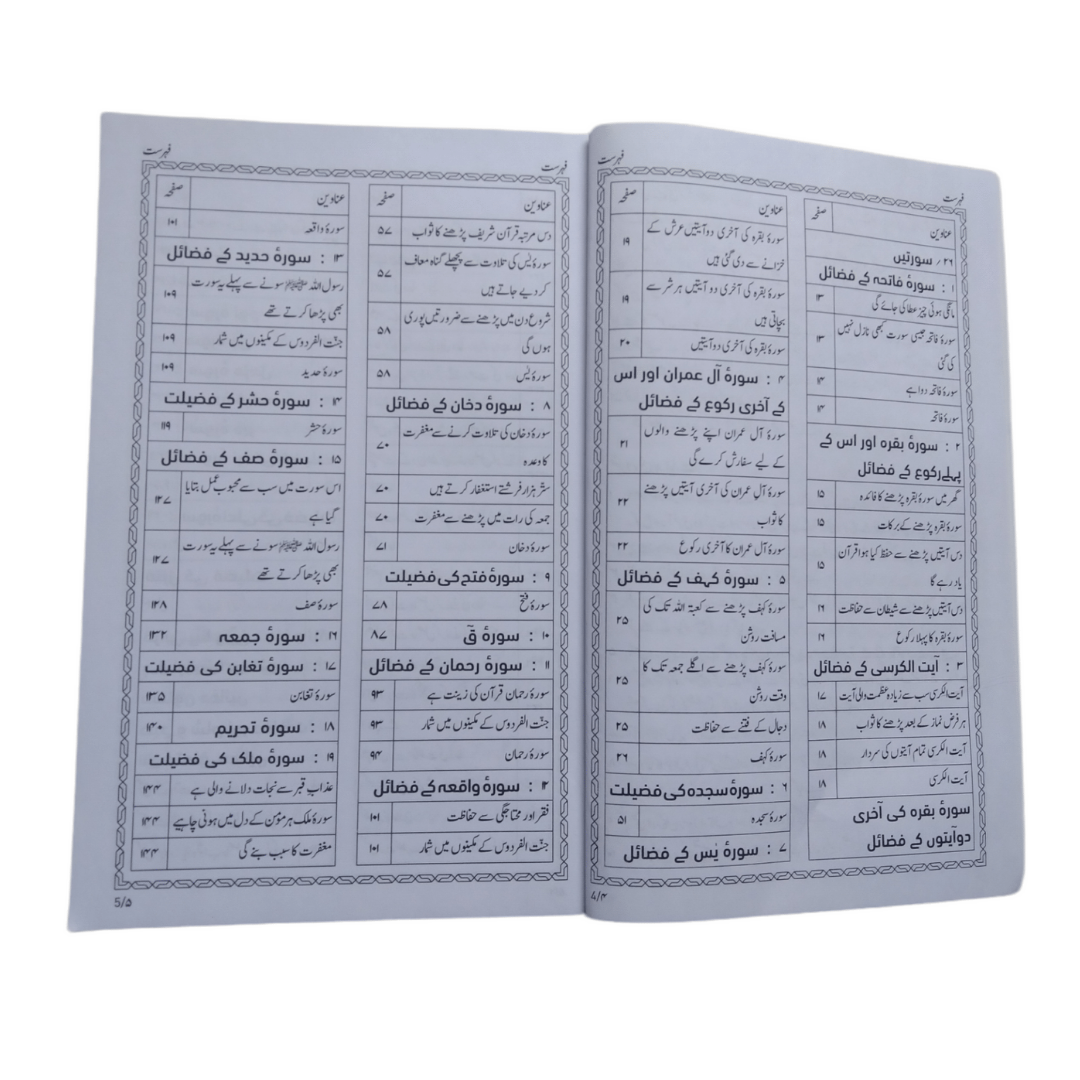 فہرست
فہرست
عناوین صفحہ
۲۶؍ سورتیں
۱ : سورۂ فاتحہ کے فضائل
مانگی ہوئی چیز عطا کی جائے گی ۱۳
سورۂ فاتحہ جیسی سورت کبھی نازل نہیں ۱۳
کی گئی
سورۂ فاتحہ دوا ہے ۱۴
سورۂ فاتحہ ۱۴
۲ : سورۂ بقرہ اور اس کے
پہلے رکوع کے فضائل
گھر میں سورۂ بقرہ پڑھنے کا فائدہ ۱۵
سورۂ بقرہ پڑھنے کے برکات ۱۵
دس آیتیں پڑھنے سے حفظ کیا ہوا قرآن ۱۵
یاد رہے گا
دس آیتیں پڑھنے سے شیطان سے حفاظت ۱۶
سورۂ بقرہ کا پہلا رکوع ۱۶
۳ : آیت الکرسی کے فضائل
آیت الکرسی سب سے زیادہ عظمت والی آیت ۱۷
ہر فرض نماز کے بعد پڑھنے کا ثواب ۱۸
آیت الکرسی تمام آیتوں کی سردار ۱۸
آیت الکرسی ۱۸
سورۂ بقرہ کی آخری
دو آیتوں کے فضائل
عناوین صفحہ
سورۂ بقرہ کی آخری دو آیتیں عرش کے ۱۹
خزانے سے دی گئی ہیں
سورۂ بقرہ کی آخری دو آیتیں ہر شر سے ۱۹
بچاتی ہیں
سورۂ بقرہ کی آخری دو آیتیں ۲۰
۴ : سورۂ آل عمران اور اس
کے آخری رکوع کے فضائل
سورۂ آل عمران اپنے پڑھنے والوں ۲۱
کے لیے سفارش کرے گی
سورۂ آل عمران کی آخری آیتیں پڑھنے ۲۲
کا ثواب
سورۂ آل عمران کا آخری رکوع ۲۲
۵ : سورۂ کہف کے فضائل
سورۂ کہف پڑھنے سے کعبۃ اللہ تک کی ۲۵
مسافت روشن
سورۂ کہف پڑھنے سے اگلے جمعہ تک کا ۲۵
وقت روشن
دجال کے فتنے سے حفاظت ۲۵
سورۂ کہف ۲۶
۶ : سورۂ سجدہ کی فضیلت
سورۂ سجدہ ۵۱
۷ : سورۂ یٰس کے فضائل
4/۴
فہرست
فہرست
عناوین صفحہ
دس مرتبہ قرآن شریف پڑھنے کا ثواب ۵۷
سورۂ یٰس کی تلاوت سے پچھلے گناہ معاف ۵۷
کر دیے جاتے ہیں
شروع دن میں پڑھنے سے ضرورتیں پوری ۵۸
ہوں گی
سورۂ یٰس ۵۸
۸ : سورۂ دخان کے فضائل
سورۂ دخان کی تلاوت کرنے سے مغفرت ۷۰
کا وعدہ
ستّر ہزار فرشتے استغفار کرتے ہیں ۷۰
جمعہ کی رات میں پڑھنے سے مغفرت ۷۰
سورۂ دخان ۷۱
۹ : سورۂ فتح کی فضیلت
سورۂ فتح ۷۸
۱۰ : سورۂ قٓ ۸۷
۱۱ : سورۂ رحمان کے فضائل
سورۂ رحمان قرآن کی زینت ہے ۹۳
جنّت الفردوس کے مکینوں میں شمار ۹۳
سورۂ رحمان ۹۴
۱۲ : سورۂ واقعہ کے فضائل
فقر اور محتاجگی سے حفاظت ۱۰۱
جنّت الفردوس کے مکینوں میں شمار ۱۰۱
عناوین صفحہ
سورۂ واقعہ ۱۰۱
۱۳ : سورۂ حدید کے فضائل
رسول اللہ ﷺ سونے سے پہلے یہ سورت ۱۰۹
بھی پڑھا کرتے تھے
جنّت الفردوس کے مکینوں میں شمار ۱۰۹
سورۂ حدید ۱۰۹
۱۴ : سورۂ حشر کے فضیلت
سورۂ حشر ۱۱۹
۱۵ : سورۂ صف کے فضائل
اس سورت میں سب سے محبوب عمل بتایا ۱۲۷
گیا ہے
رسول اللہ ﷺ سونے سے پہلے یہ سورت ۱۲۷
بھی پڑھا کرتے تھے
سورۂ صف ۱۲۸
۱۶ : سورۂ جمعہ ۱۳۲
۱۷ : سورۂ تغابن کی فضیلت
سورۂ تغابن ۱۳۵
۱۸ : سورۂ تحریم ۱۴۰
۱۹ : سورۂ ملک کی فضیلت
عذاب قبر سے نجات دلانے والی ہے ۱۴۴
سورۂ ملک ہر مؤمن کے دل میں ہونی چاہیے ۱۴۴
مغفرت کا سبب بنے گی ۱۴۴
5/۵